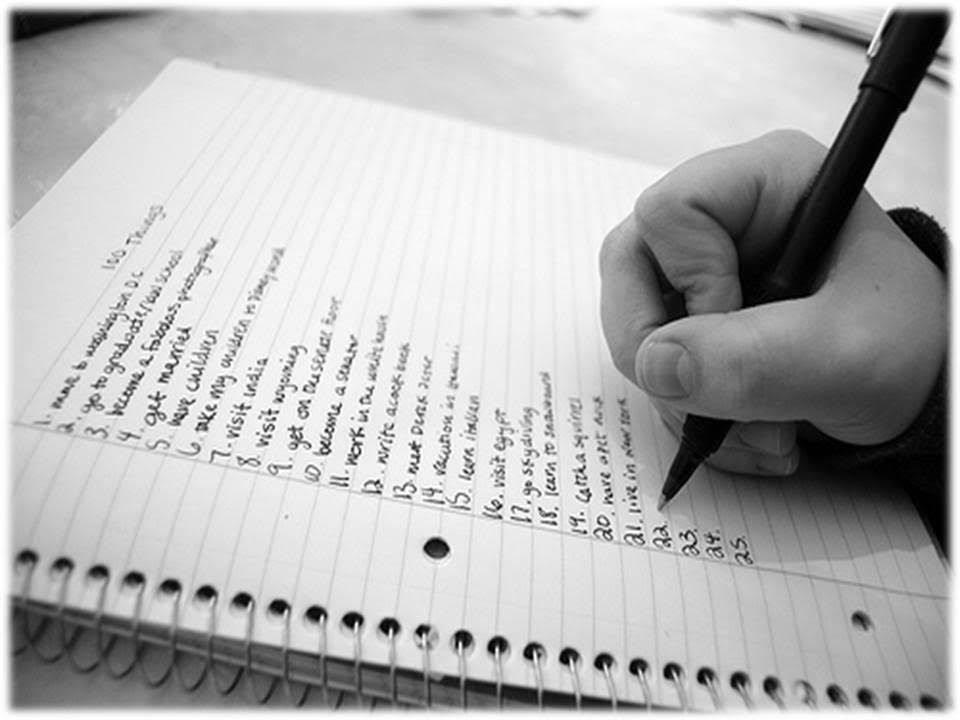 100 Things
1. move to washington D.C
2. go to graduate/law school
3. become a fabulous photographer
4. get married
5. have children
6. take my children to Disney world
7. visit India
8. visit wyoming
9. get on the senate floor
10. become a senator
11. work in the white house
12. write a cook book
13. meet Derek Jeter
14. vacation in Hawaii
15. learn italian
16. visit egypt
17. go skydiving
18. learn to snowboard
19. catch a squirrel
20. have a pet
21. live in new york
22.
23.
24.
25.